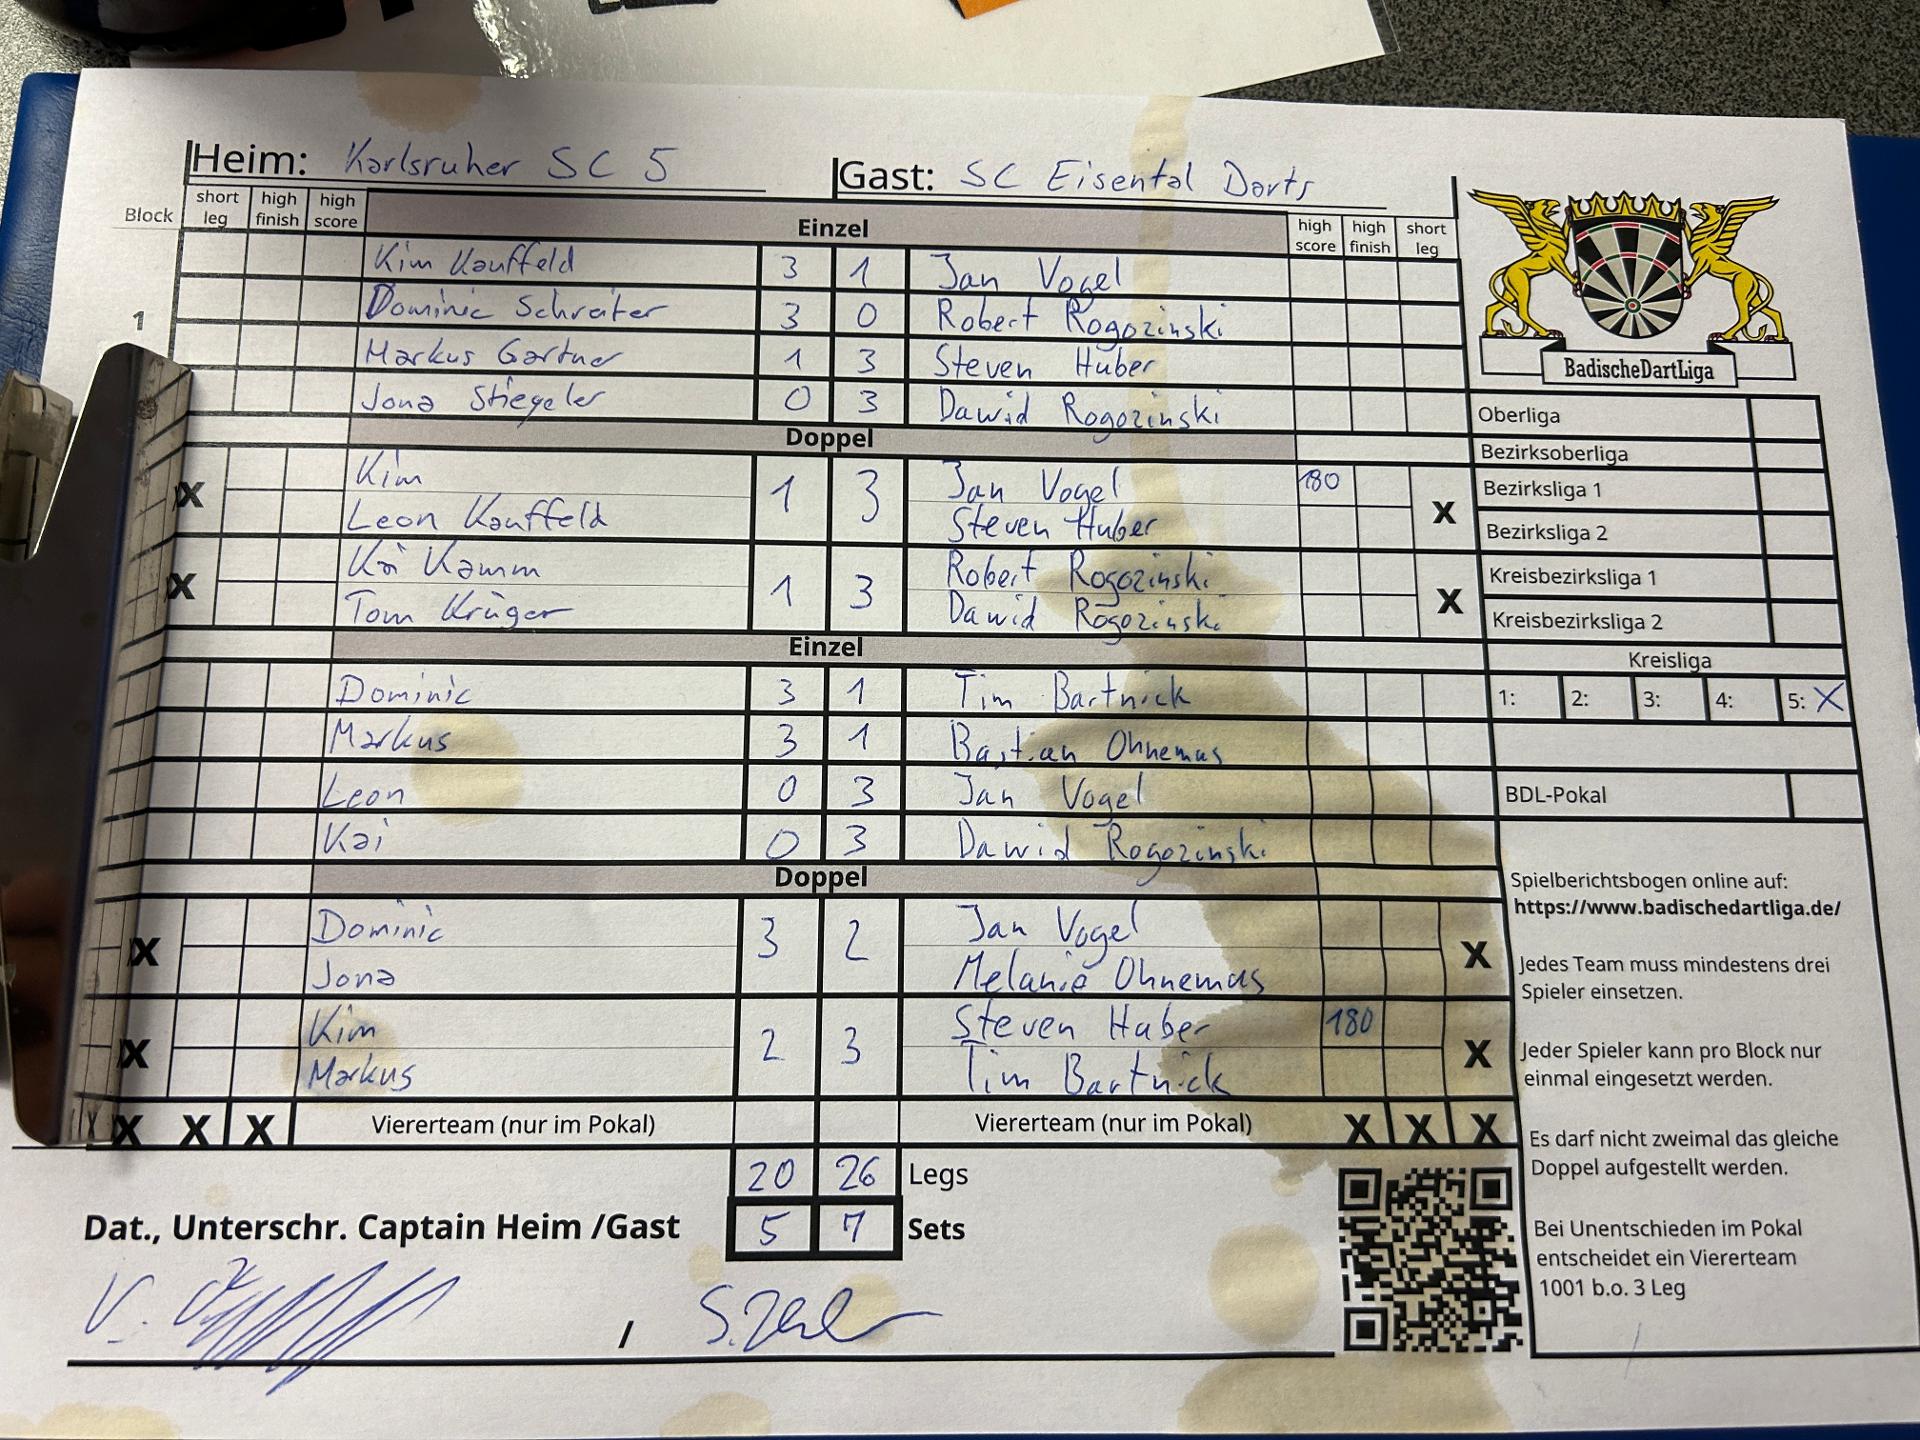 Heim: Karlsruher SC 5 Gast: SC Eisental Darts
Block short leg high finish high score Einzel high score high finish short leg
Kim Kauffeld 3 1 Jan Vogel
1 Dominic Schreiter 3 0 Robert Rogozinski
Markus Gartner 1 3 Steven Huber
Jona Stiegeler 0 3 Dawid Rogozinski
Doppel
Kim Jan Vogel 180
X 1 3 X
Leon Kauffeld Steven Huber
Kai Kamm Robert Rogozinski
X 1 3 X
Tom Krüger Dawid Rogozinski
Einzel
Dominic 3 1 Tim Bartnick
Markus 3 1 Bastian Ohnemus
Leon 0 3 Jan Vogel
Kai 0 3 Dawid Rogozinski
Doppel
Dominic Jan Vogel
X 3 2 X
Jona Melanie Ohnemus
Kim Steven Huber 180
X 2 3 X
Markus Tim Bartnick
X X X X Vierterteam (nur im Pokal) Viererteam (nur im Pokal) X X X
20 26 Legs
Dat., Unterschr. Captain Heim /Gast 5 7 Sets
/
BadischeDartLiga
Oberliga
Bezirksoberliga
Bezirksliga 1
Bezirksliga 2
Kreisbezirksliga 1
Kreisbezirksliga 2
Kreisliga
1: 2: 3: 4: 5: X
BDL-Pokal
Spielberichtsbogen online auf:
https://www.badischedartliga.de/
Jedes Team muss mindestens drei
Spieler einsetzen.
Jeder Spieler kann pro Block nur
einmal eingesetzt werden.
Es darf nicht zweimal das gleiche
Doppel aufgestellt werden.
Bei Unentschieden im Pokal
entscheidet ein Viererteam
1001 b.o. 3 Leg